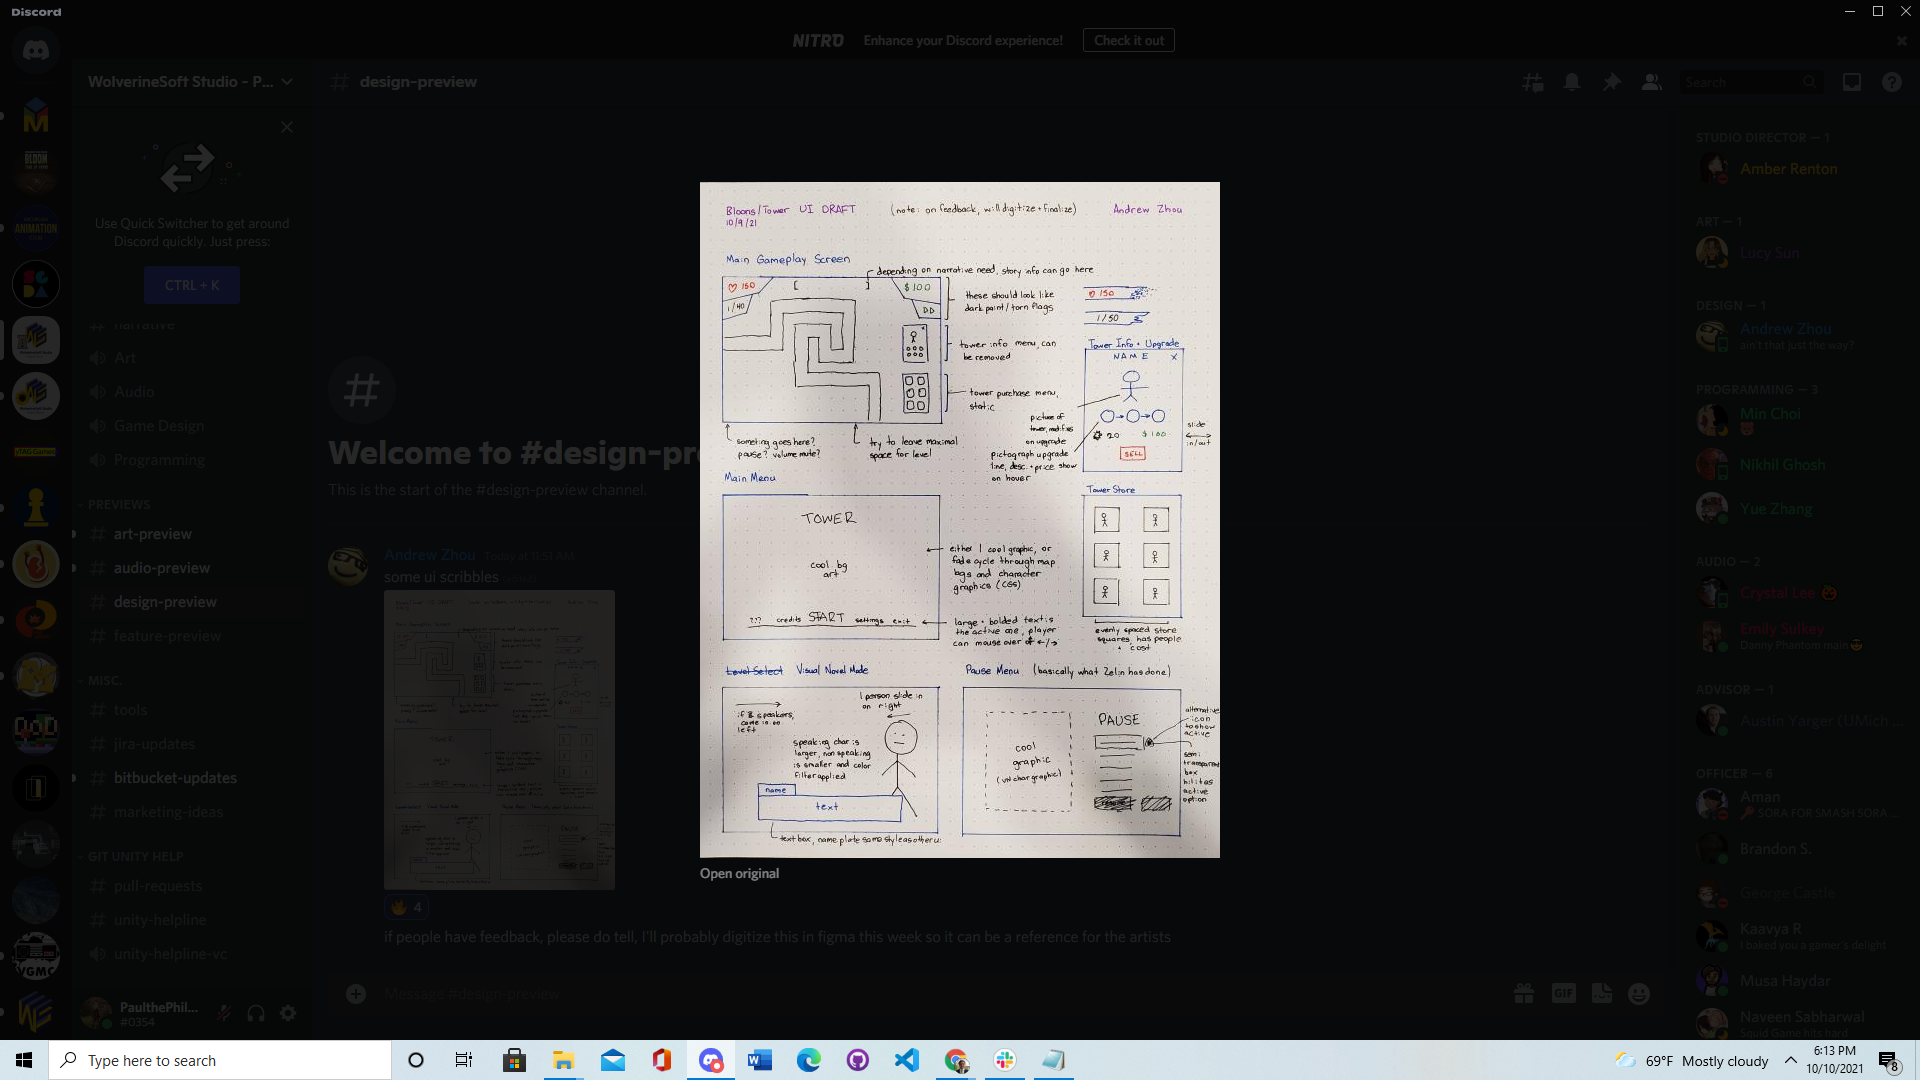 Discord
NITRO
Enhance your Discord experience!
Check it out
WolverineSoft Studio - P...
design-preview
Search
Use Quick Switcher to get around
Discord quickly. Just press:
CTRL + K
narrative
Art
Audio
Game Design
Programming
PREVIEWS
art-preview
audio-preview
design-preview
feature-preview
MISC.
tools
jira-updates
bitbucket-updates
marketing-ideas
GIT UNITY HELP
pull-requests
unity-helpline
unity-helpline-vc
PaulthePhil...
#0354
Welcome to #design-pr
This is the start of the #design-preview channel.
Andrew Zhou Today at 11:51 AM
some ui scribbles
4
if people have feedback, please do tell, I'll probably digitize this in figma this week so it can be a reference for the artists
Message #design-preview
GIF
Bloons/Tower UI DRAFT
(note: on feedback, will digitize + finalize)
Andrew Zhou
10/9/21
Main Gameplay Screen
depending on narrative need, story info can go here
150
1/40
[ ]
$100
DD
these should look like
dark paint/torn flags
150
1/50
tower info menu, can
be removed
tower purchase menu,
static
someting goes here?
pause? volume mute?
try to leave maximal
space for level
Tower Info + Upgrade
NAME X
20
$100
SELL
picture of
tower, modifies
on upgrade
pictograph upgrade
line, desc. + price show
on hover
slide
in/out
Main Menu
TOWER
cool bg
art
??? credits START settings exit
either 1 cool graphic, or
fade cycle through map
bgs and character
graphics (CGS)
large + bolded text is
the active one, player
can mouse over or ←/→
Tower Store
evenly spaced store
squares, has people
+ cost
Level Select Visual Novel Mode
1 person slide in
on right
if 2 speakers,
come in on
left
speaking char is
larger, non speaking
is smaller and color
filter applied
name
text
text box, name plate same style as other ui
Pause Menu (basically what Zelin has done)
cool
graphic
(VN char graphic)
PAUSE
alternative
icon
to show
active
semi
transparent
box
hilites
active
option
Open original
STUDIO DIRECTOR — 1
Amber Renton
ART — 1
Lucy Sun
DESIGN — 1
Andrew Zhou
ain't that just the way?
PROGRAMMING — 3
Min Choi
Nikhil Ghosh
Yue Zhang
AUDIO — 2
Crystal Lee
Emily Sulkey
Danny Phantom main
ADVISOR — 1
Austin Yarger (UMich ...
OFFICER — 6
Aman
SORA FOR SMASH SORA ...
Brandon S.
George Castle
Kaavya R
I baked you a gamer's delight
Musa Haydar
Naveen Sabharwal
Squid Game hits hard
Type here to search
69°F Mostly cloudy
6:13 PM
10/10/2021
8